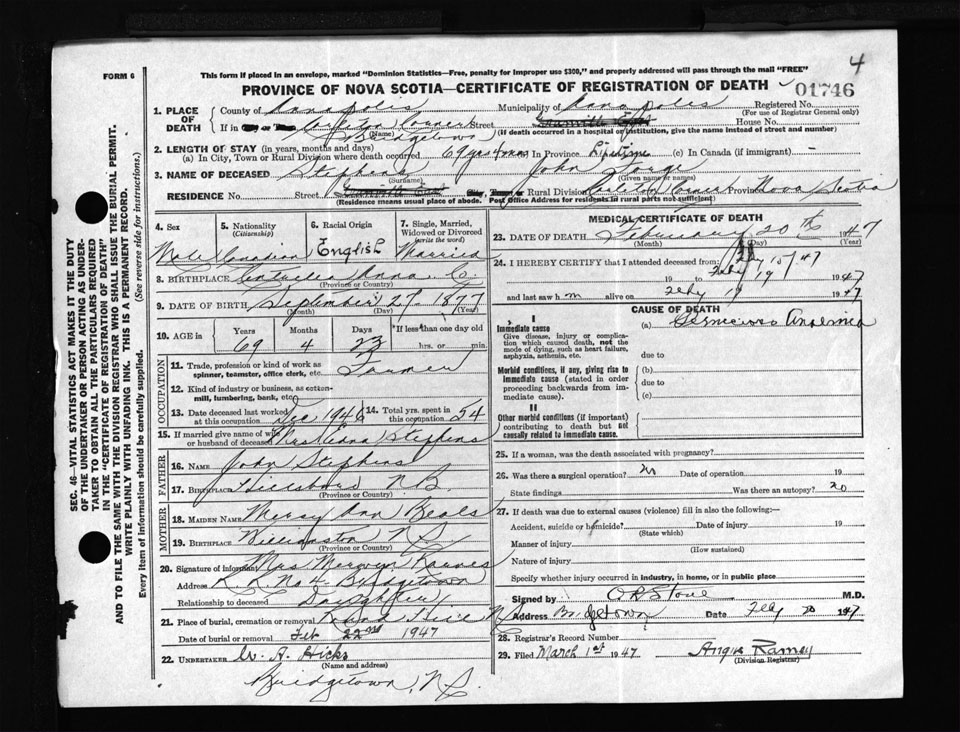 4
FORM 6
This form if placed in an envelope, marked "Dominion Statistics—Free, penalty for improper use $300," and properly addressed will pass through the mail "FREE"
PROVINCE OF NOVA SCOTIA—CERTIFICATE OF REGISTRATION OF DEATH
01746
SEC. 46—VITAL STATISTICS ACT MAKES IT THE DUTY
OF THE UNDERTAKER OR PERSON ACTING AS UNDER-
TAKER TO OBTAIN ALL THE PARTICULARS REQUIRED
IN THE "CERTIFICATE OF REGISTRATION OF DEATH"
AND TO FILE THE SAME WITH THE DIVISION REGISTRAR WHO SHALL ISSUE THE BURIAL PERMIT.
WRITE PLAINLY WITH UNFADING INK. THIS IS A PERMANENT RECORD.
Every item of information should be carefully supplied. (See reverse side for instructions.)
1. PLACE OF DEATH County of Annapolis Municipality of Annapolis Registered No.
(For use of Registrar General only)
If in Carleton Corner Street House No.
(Name) (If death occurred in a hospital or institution, give the name instead of street and number)
Bridgetown
2. LENGTH OF STAY (in years, months and days)
(a) In City, Town or Rural Division where death occurred 69 yrs 4 mos In Province Lifetime (c) In Canada (if immigrant) —
3. NAME OF DECEASED Stephens John
(Surname) (Given name or names)
RESIDENCE No. Street Rural Division Carleton Corner Province Nova Scotia
(Residence means usual place of abode. Post Office Address for residents in rural parts not sufficient)
4. Sex 5. Nationality (Citizenship) 6. Racial Origin 7. Single, Married, Widowed or Divorced (write the word)
Male Canadian English Married
8. BIRTHPLACE Centrelea Anna. C.
(Province or Country)
9. DATE OF BIRTH September 27 1877
(Month) (Day) (Year)
10. AGE Years Months Days If less than one day old
69 4 23 hrs. or min.
OCCUPATION
11. Trade, profession or kind of work as spinner, teamster, office clerk, etc. Farmer
12. Kind of industry or business, as cotton-mill, lumbering, bank, etc.
13. Date deceased last worked at this occupation Dec 1946 14. Total yrs. spent in this occupation 54
15. If married give name of wife or husband of deceased Stephens
FATHER
16. NAME John Stephens
17. BIRTHPLACE Hillsboro N.B.
(Province or Country)
MOTHER
18. MAIDEN NAME Mercy Ann Beals
19. BIRTHPLACE Williamston N.S.
(Province or Country)
20. Signature of informant Mrs Merwyn
Address R.R. No 4 Bridgetown
Relationship to deceased Daughter
21. Place of burial, cremation or removal
Date of burial or removal Feb 22nd 1947
22. UNDERTAKER W. A. Hicks
(Name and address)
Bridgetown, N.S.
MEDICAL CERTIFICATE OF DEATH
23. DATE OF DEATH February 20th 1947
(Month) (Day) (Year)
24. I HEREBY CERTIFY that I attended deceased from: Feby 15/47
19 to Feby 19 1947
and last saw h m alive on Feby 19 1947
CAUSE OF DEATH
I
Immediate cause (a) Pernicious Anaemia
Give disease, injury or complication which caused death, not the mode of dying, such as heart failure, asphyxia, asthenia, etc.
due to
Morbid conditions, if any, giving rise to immediate cause (stated in order proceeding backwards from immediate cause).
(b)
due to
(c)
II
Other morbid conditions (if important) contributing to death but not causally related to immediate cause.
25. If a woman, was the death associated with pregnancy?
26. Was there a surgical operation? no Date of operation 19
State findings Was there an autopsy? no
27. If death was due to external causes (violence) fill in also the following:—
Accident, suicide or homicide? Date of injury 19
(State which)
Manner of injury
(How sustained)
Nature of injury
Specify whether injury occurred in industry, in home, or in public place
Signed by M.D.
Address Bridgetown Date Feby 20 1947
28. Registrar's Record Number
29. Filed March 1st 1947 Angus Ramey
(Division Registrar)